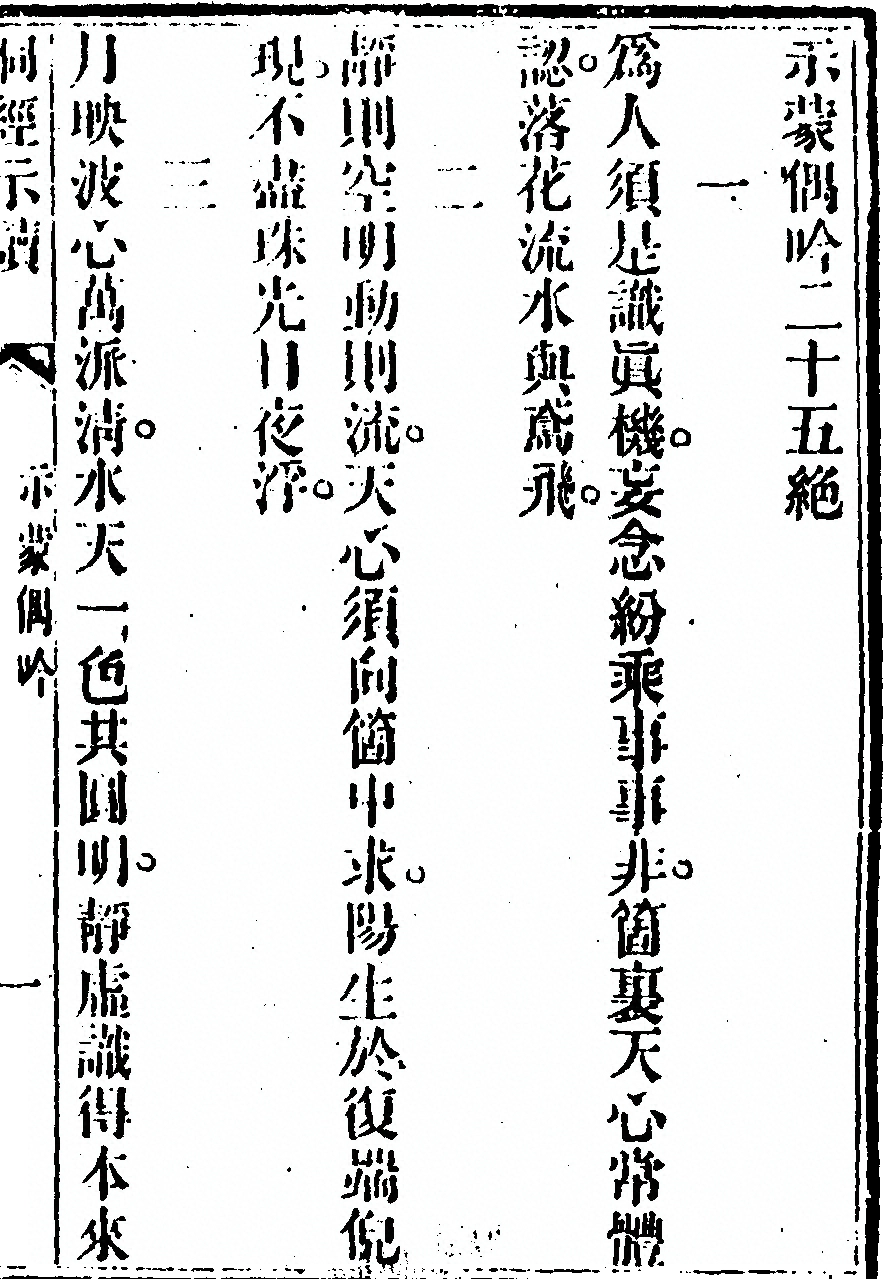 示蒙偶吟二十五絕
一
爲人須是識眞機。妄念紛乘事事非。箇裏天心常體
認。落花流水與鳶飛。
二
靜則空明動則流。天心須向箇中求。陽生於復端倪
現。不盡珠光日夜浮。
三
月映波心萬派淸。水天一色共圓明。靜虛識得本來
經示讀
示蒙偶吟
一